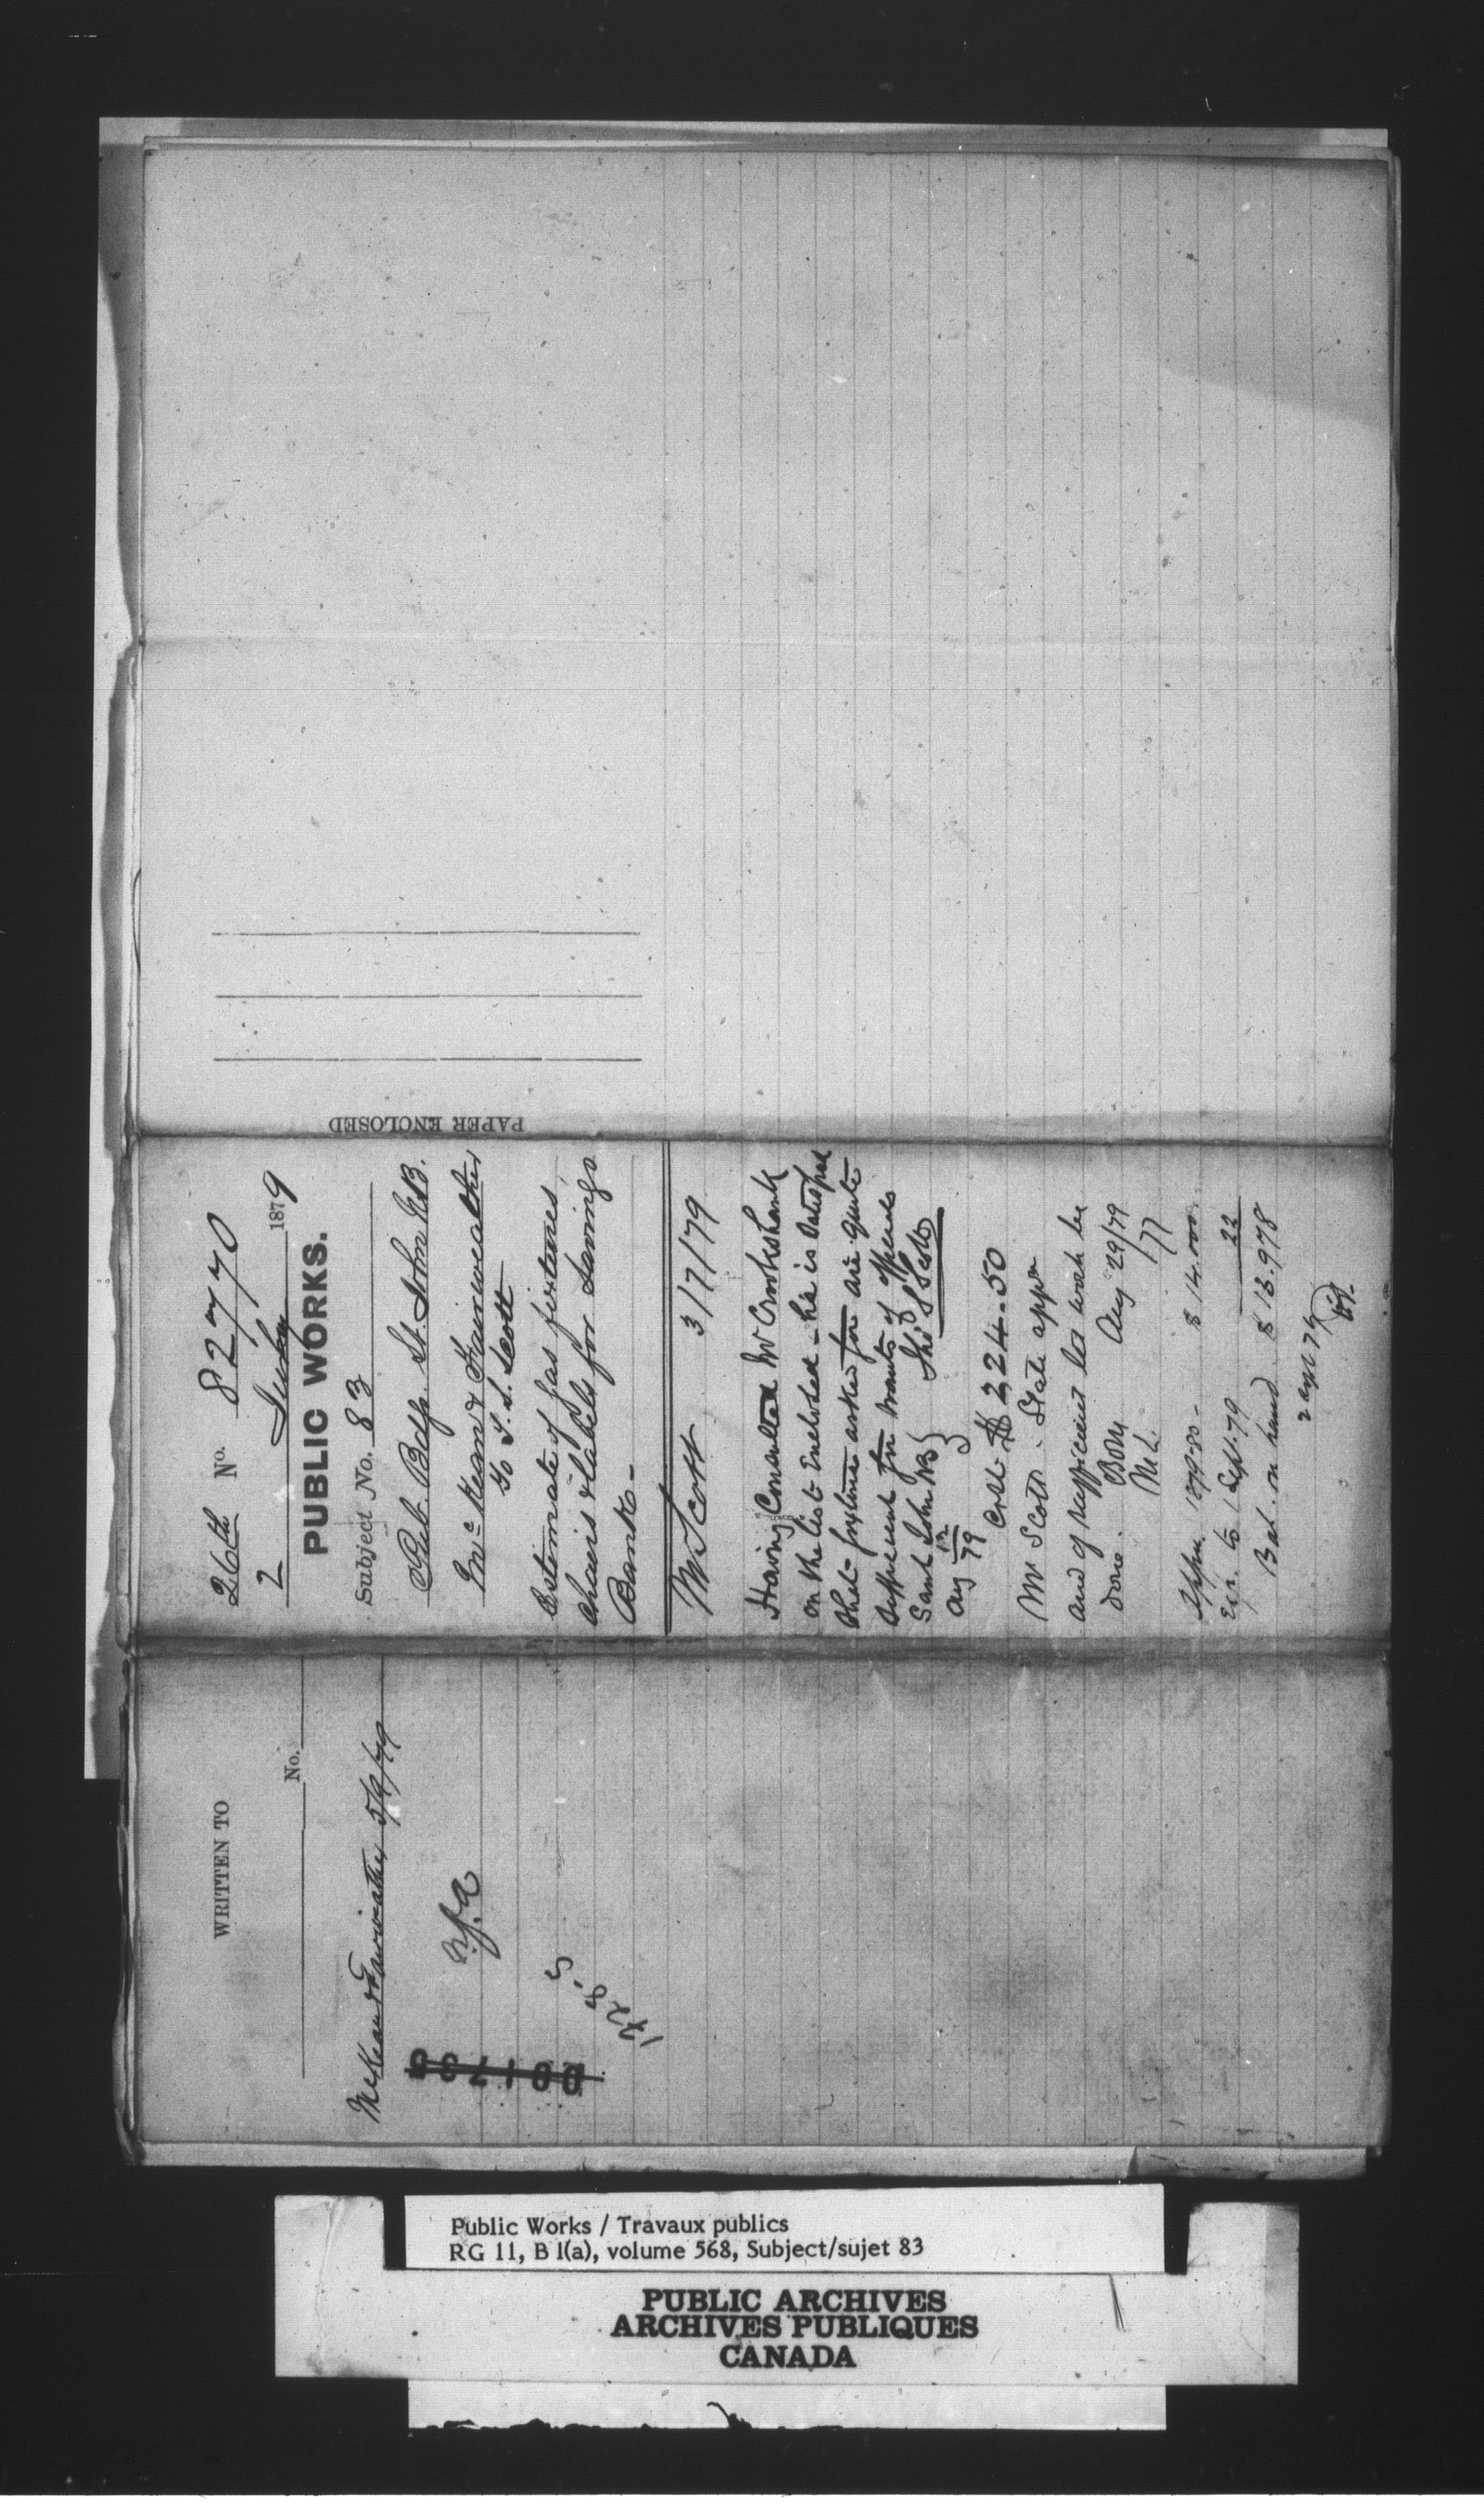 26th No. 82770
2 July 1879
PUBLIC WORKS.
Subject No. 83
Pub. Bdgs. St. John N.B.
McKean & Fairweather
to T. S. Scott
Estimate of gas fixtures,
chairs & labels for Savings
Bank -
Mr Scott 3/7/79
Having Consulted Mr Crookshank
on the list Enclosed - he is Satisfied
that fixtures asked for are quite
sufficient for wants of offices
Saint John NB } Tho S Scott
Aug 12/79 }
Cost $224.50
Mr Scott. State appn
and if sufficient let work be
done. Aug 29/79
Appn. 1879-80 - $ 14.000
Exp. to 1 Sept. 79 22
Bal. on hand $ 13.978
2 Sept 79
PAPER ENCLOSED
WRITTEN TO
No.
McKean & Fairweather 5/9/79
1728.5
Public Works / Travaux publics
RG 11, B 1(a), volume 568, Subject/sujet 83
PUBLIC ARCHIVES
ARCHIVES PUBLIQUES
CANADA